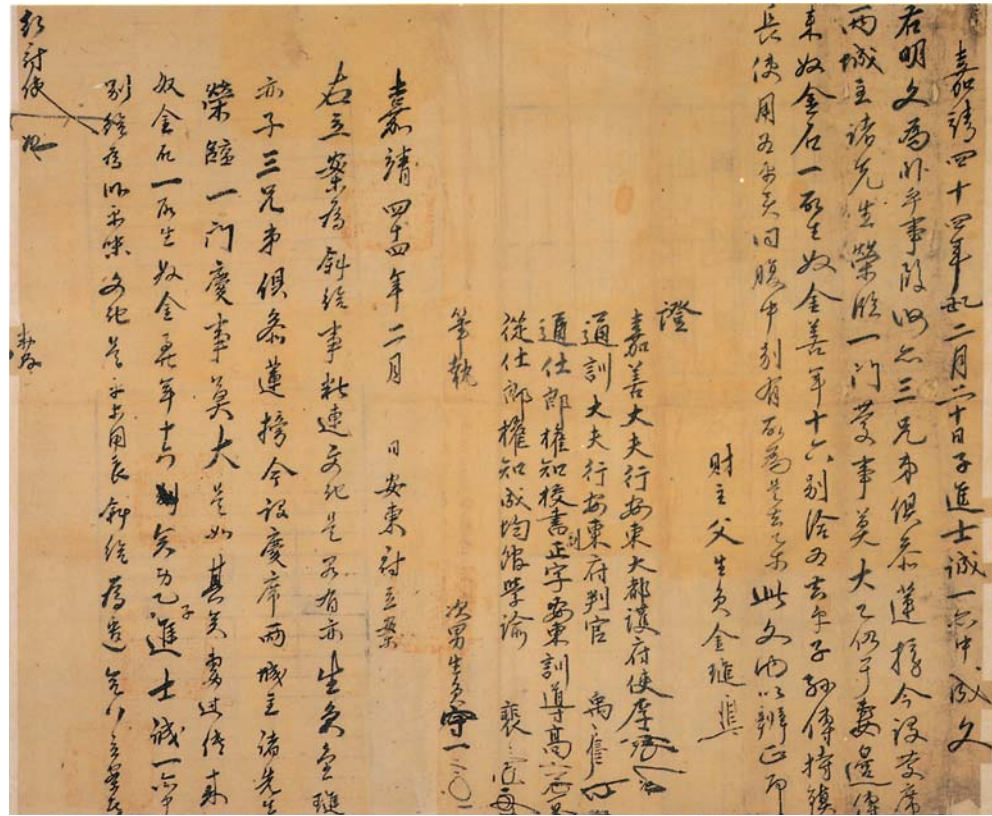 嘉靖四十四年乙丑二月二十日子進士誠一亦中成文
右明文爲臥乎事段汝亦三兄弟俱參蓮榜今設慶席
兩城主諸先生榮臨一門慶事莫大乙仍于妻邊傳
來奴金石一所生奴金善年十六別給爲去乎子孫傳持鎭
長使用爲乎矣同腹中別有所爲是去等此文內以辨正印
財主父生員金璡
證
嘉善大夫行安東大都護府使李
通訓大夫行安東府判官 禹
通仕郎權知校書正字安東訓導高
從仕郎權知成均館學諭 裵
筆執
次男生員守一
嘉靖四十四年二月 日安東府立案
右立案爲斜給事粘連文記是置有亦生員金璡
亦子三兄弟俱參蓮榜今設慶席兩城主諸先生
榮臨一門慶事莫大是如其矣妻邊傳來
奴金石一所生奴金善年十六矣身乙子進士誠一亦中
別給爲臥乎味文記是乎等用良斜給爲遣合行立案者
都護使
判官